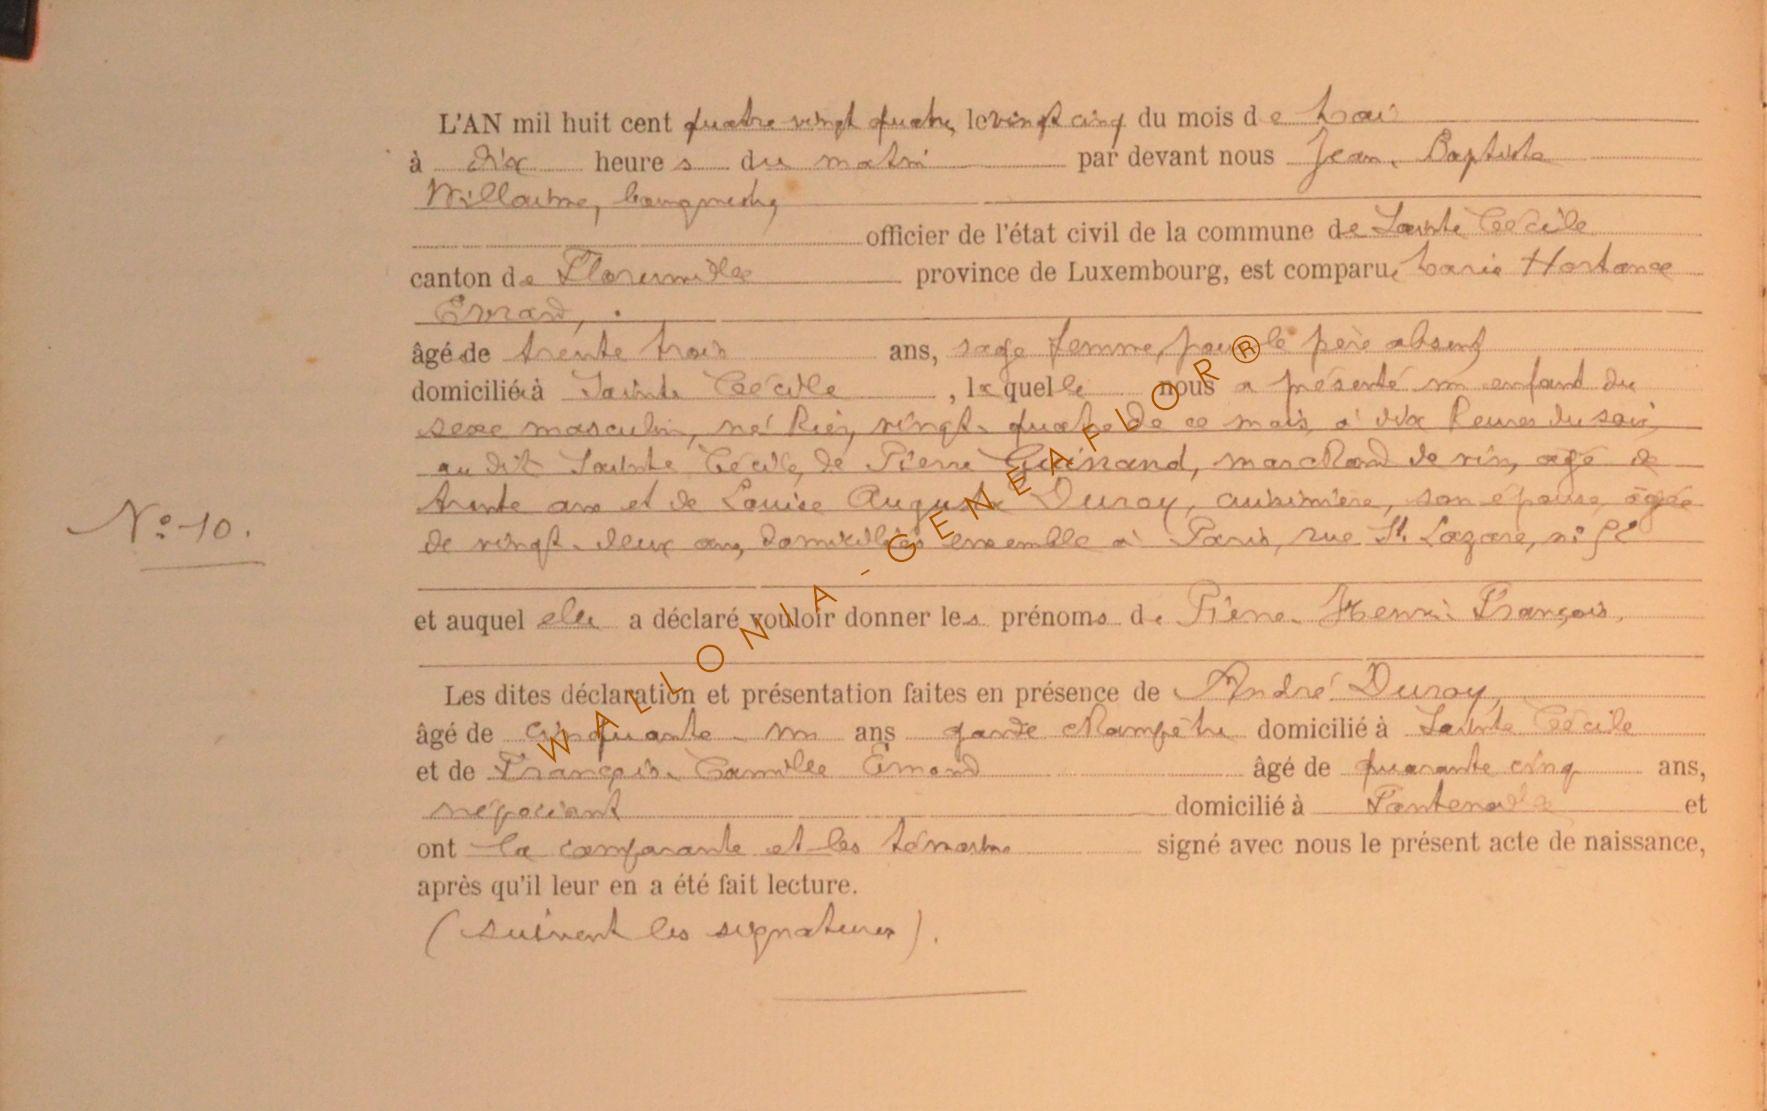 L'AN mil huit cent quatre vingt quatre, le vingt cinq du mois de Mai
à dix heures du matin par devant nous Jean-Baptiste
Willaime, bourgmestre,
officier de l'état civil de la commune de Sainte Cécile
canton de Florenville province de Luxembourg, est comparue Marie Hortance
Evrard,
âgée de trente trois ans, sage femme, pour le père absent
domiciliée à Sainte Cécile, laquelle nous a présenté un enfant du
sexe masculin, né hier, vingt-quatre de ce mois, à dix heures du soir,
au dit Sainte Cécile, de Pierre Guinand, marchand de vin, âgé de
trente ans et de Louise Auguste Duroy, cuisinière, son épouse, âgée
de vingt-deux ans, domiciliés ensemble à Paris, rue St. Lazare, n°
N° 10.
et auquel elle a déclaré vouloir donner les prénoms de Pierre-Henri-François.
Les dites déclaration et présentation faites en présence de André Duroy,
âgé de cinquante-un ans garde champêtre domicilié à Sainte Cécile
et de François-Camille Emond âgé de quarante cinq ans,
négociant domicilié à Fontenoille et
ont la comparante et les témoins signé avec nous le présent acte de naissance,
après qu'il leur en a été fait lecture.
(suivent les signatures).
WALLONIA-GENEAFLOR®